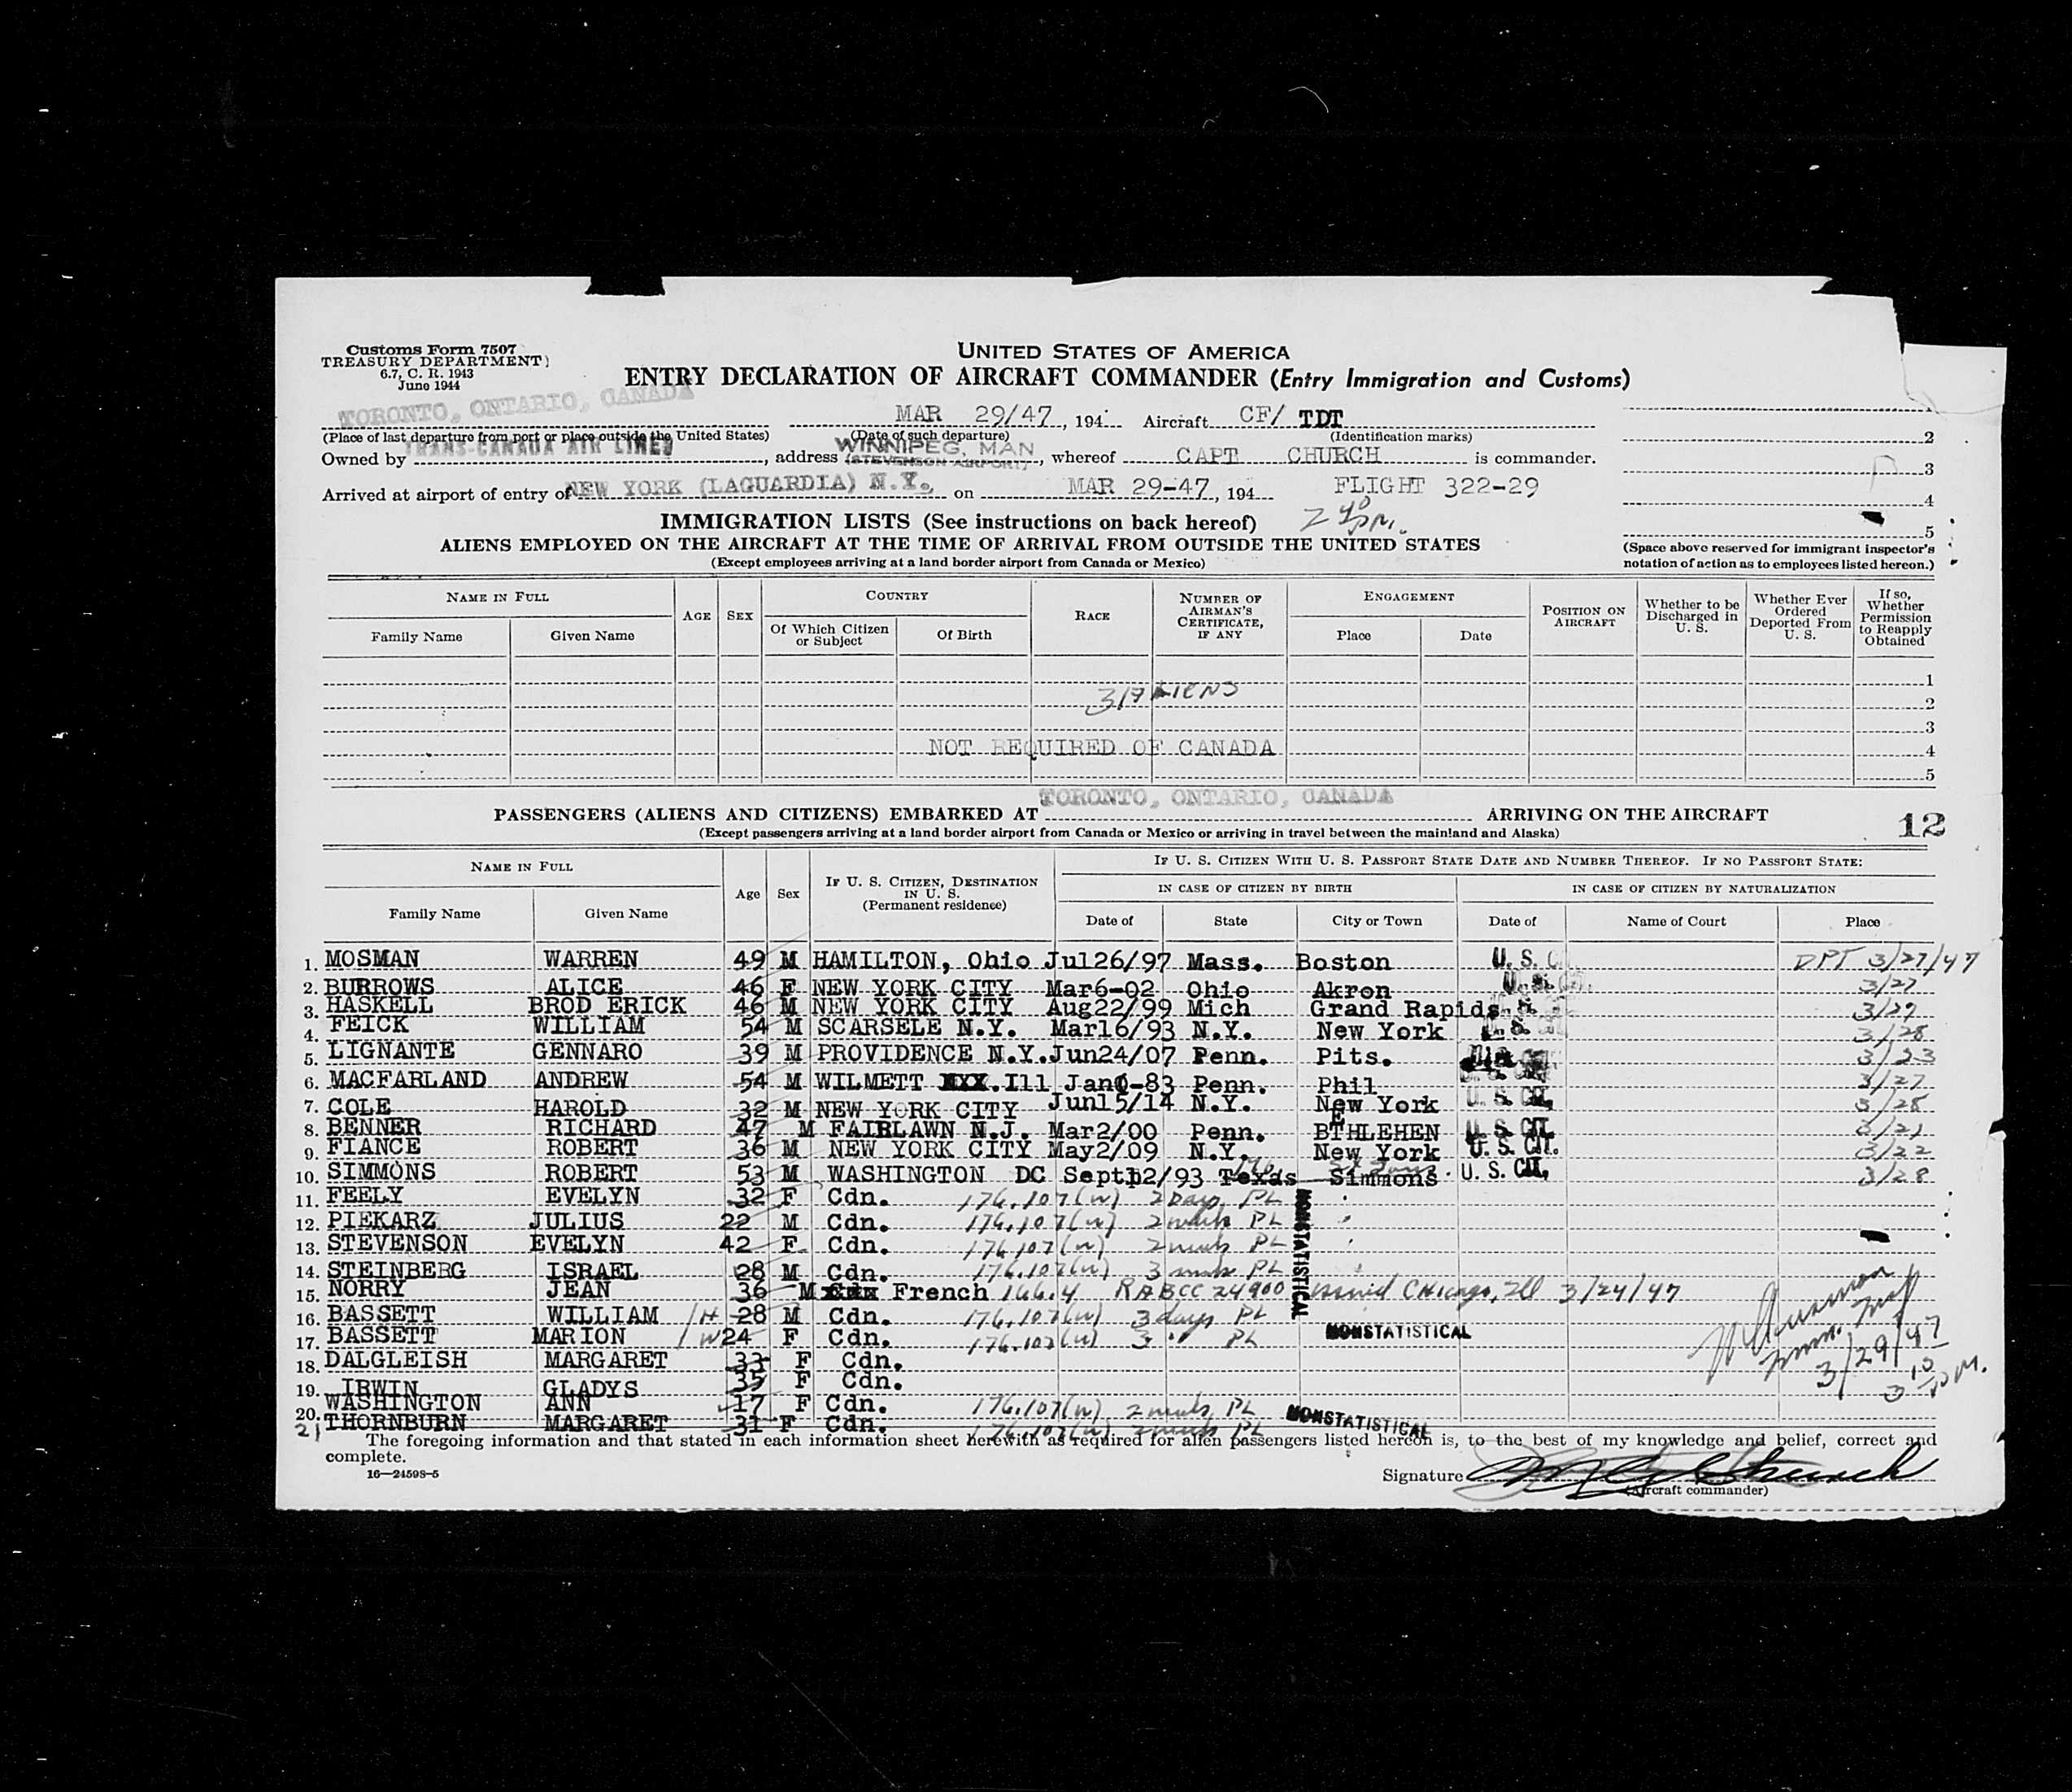 Customs Form 7507
TREASURY DEPARTMENT)
6.7, C. R. 1943
June 1944
UNITED STATES OF AMERICA
ENTRY DECLARATION OF AIRCRAFT COMMANDER (Entry Immigration and Customs)
TORONTO, ONTARIO, CANADA MAR 29/47, 194 Aircraft CF/ TDT 1
(Place of last departure from port or place outside the United States) (Date of such departure) (Identification marks) 2
Owned by TRANS-CANADA AIR LINES, address WINNIPEG, MAN (STEVENSON AIRPORT), whereof CAPT CHURCH is commander. 3
Arrived at airport of entry of NEW YORK (LAGUARDIA) N.Y. on MAR 29-47, 194 FLIGHT 322-29 4
IMMIGRATION LISTS (See instructions on back hereof) 2 40 PM. 5
ALIENS EMPLOYED ON THE AIRCRAFT AT THE TIME OF ARRIVAL FROM OUTSIDE THE UNITED STATES
(Except employees arriving at a land border airport from Canada or Mexico)
(Space above reserved for immigrant inspector's
notation of action as to employees listed hereon.)
NAME IN FULL AGE SEX COUNTRY RACE NUMBER OF AIRMAN'S CERTIFICATE, IF ANY ENGAGEMENT POSITION ON AIRCRAFT Whether to be Discharged in U. S. Whether Ever Ordered Deported From U. S. If so, Whether Permission to Reapply Obtained
Family Name Given Name Of Which Citizen or Subject Of Birth Place Date
1
ALIENS 2
3
NOT REQUIRED OF CANADA 4
5
PASSENGERS (ALIENS AND CITIZENS) EMBARKED AT TORONTO, ONTARIO, CANADA ARRIVING ON THE AIRCRAFT 12
(Except passengers arriving at a land border airport from Canada or Mexico or arriving in travel between the mainland and Alaska)
NAME IN FULL Age Sex IF U. S. CITIZEN, DESTINATION IN U. S. (Permanent residence) IF U. S. CITIZEN WITH U. S. PASSPORT STATE DATE AND NUMBER THEREOF. IF NO PASSPORT STATE:
IN CASE OF CITIZEN BY BIRTH IN CASE OF CITIZEN BY NATURALIZATION
Family Name Given Name Date of State City or Town Date of Name of Court Place
1. MOSMAN WARREN 49 M HAMILTON, Ohio Jul26/97 Mass. Boston U. S. C DPT 3/27/47
2. BURROWS ALICE 46 F NEW YORK CITY Mar6-02 Ohio Akron 3/27
3. HASKELL BROD ERICK 46 M NEW YORK CITY Aug22/99 Mich Grand Rapids 3/27
4. FEICK WILLIAM 54 M SCARSELE N.Y. Mar16/93 N.Y. New York 3/28
5. LIGNANTE GENNARO 39 M PROVIDENCE N.Y. Jun24/07 Penn. Pits. 3/23
6. MACFARLAND ANDREW 54 M WILMETT XXX.Ill Jan0-83 Penn. Phil 3/27
7. COLE HAROLD 32 M NEW YORK CITY Jun15/14 N.Y. New York U. S. Cit. 3/28
8. BENNER RICHARD 47 M FAIRLAWN N.J. Mar2/00 Penn. BETHLEHEN U. S. Cit. 3/21
9. FIANCE ROBERT 36 M NEW YORK CITY May2/09 N.Y. New York U. S. Cit. 3/22
10. SIMMONS ROBERT 53 M WASHINGTON DC Sept12/93 Texas Simmons U. S. Cit. 3/28
11. FEELY EVELYN 32 F Cdn. 176.107(w) 2 Days PL
12. PIEKARZ JULIUS 22 M Cdn. 176.107(w) 2 weeks PL
13. STEVENSON EVELYN 42 F Cdn. 176.107(w) 2 weeks PL
14. STEINBERG ISRAEL 28 M Cdn. 176.107(w) 3 weeks PL
NONSTATISTICAL
15. NORRY JEAN 36 M Cdn French 166.4 RABCC 24900 issued Chicago, Ill 3/24/47
16. BASSETT WILLIAM /H 28 M Cdn. 176.107(w) 3 days PL
17. BASSETT MARION /W 24 F Cdn. 176.107(w) 3 " PL NONSTATISTICAL
18. DALGLEISH MARGARET 33 F Cdn. 3/29/47
19. IRWIN GLADYS 35 F Cdn. 3 10 P.M.
20. WASHINGTON ANN 17 F Cdn. 176.107(w) 2 weeks PL NONSTATISTICAL
21 THORNBURN MARGARET 31 F Cdn. 176.107(w) 2 weeks PL
The foregoing information and that stated in each information sheet herewith as required for alien passengers listed hereon is, to the best of my knowledge and belief, correct and
complete.
16—24598-5
Signature
(Aircraft commander)